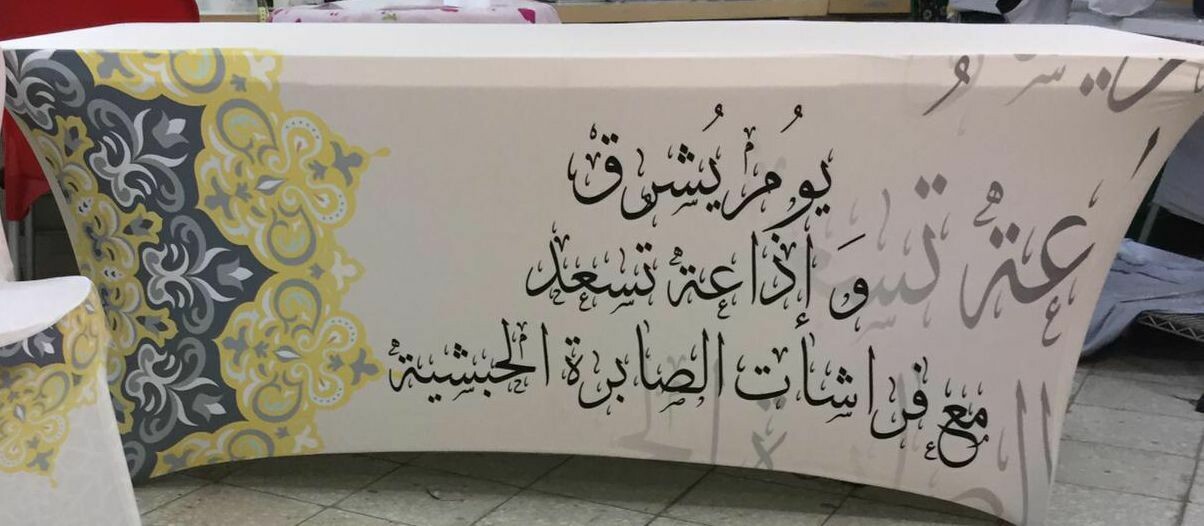 يُومْ يُشرق
وَ إذاعة تسعد
مع فراشات الصابرة الحبشية